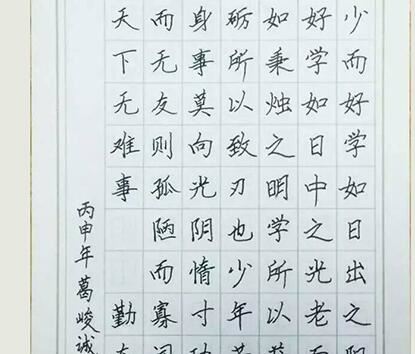 少而好学如日出之阳
好学如日中之光老而
如秉烛之明学所以
砺所以致刃也少年
身事莫向光阴惰寸功
而无友则孤陋而寡闻
天下无难事 勤
丙申年葛峻诚